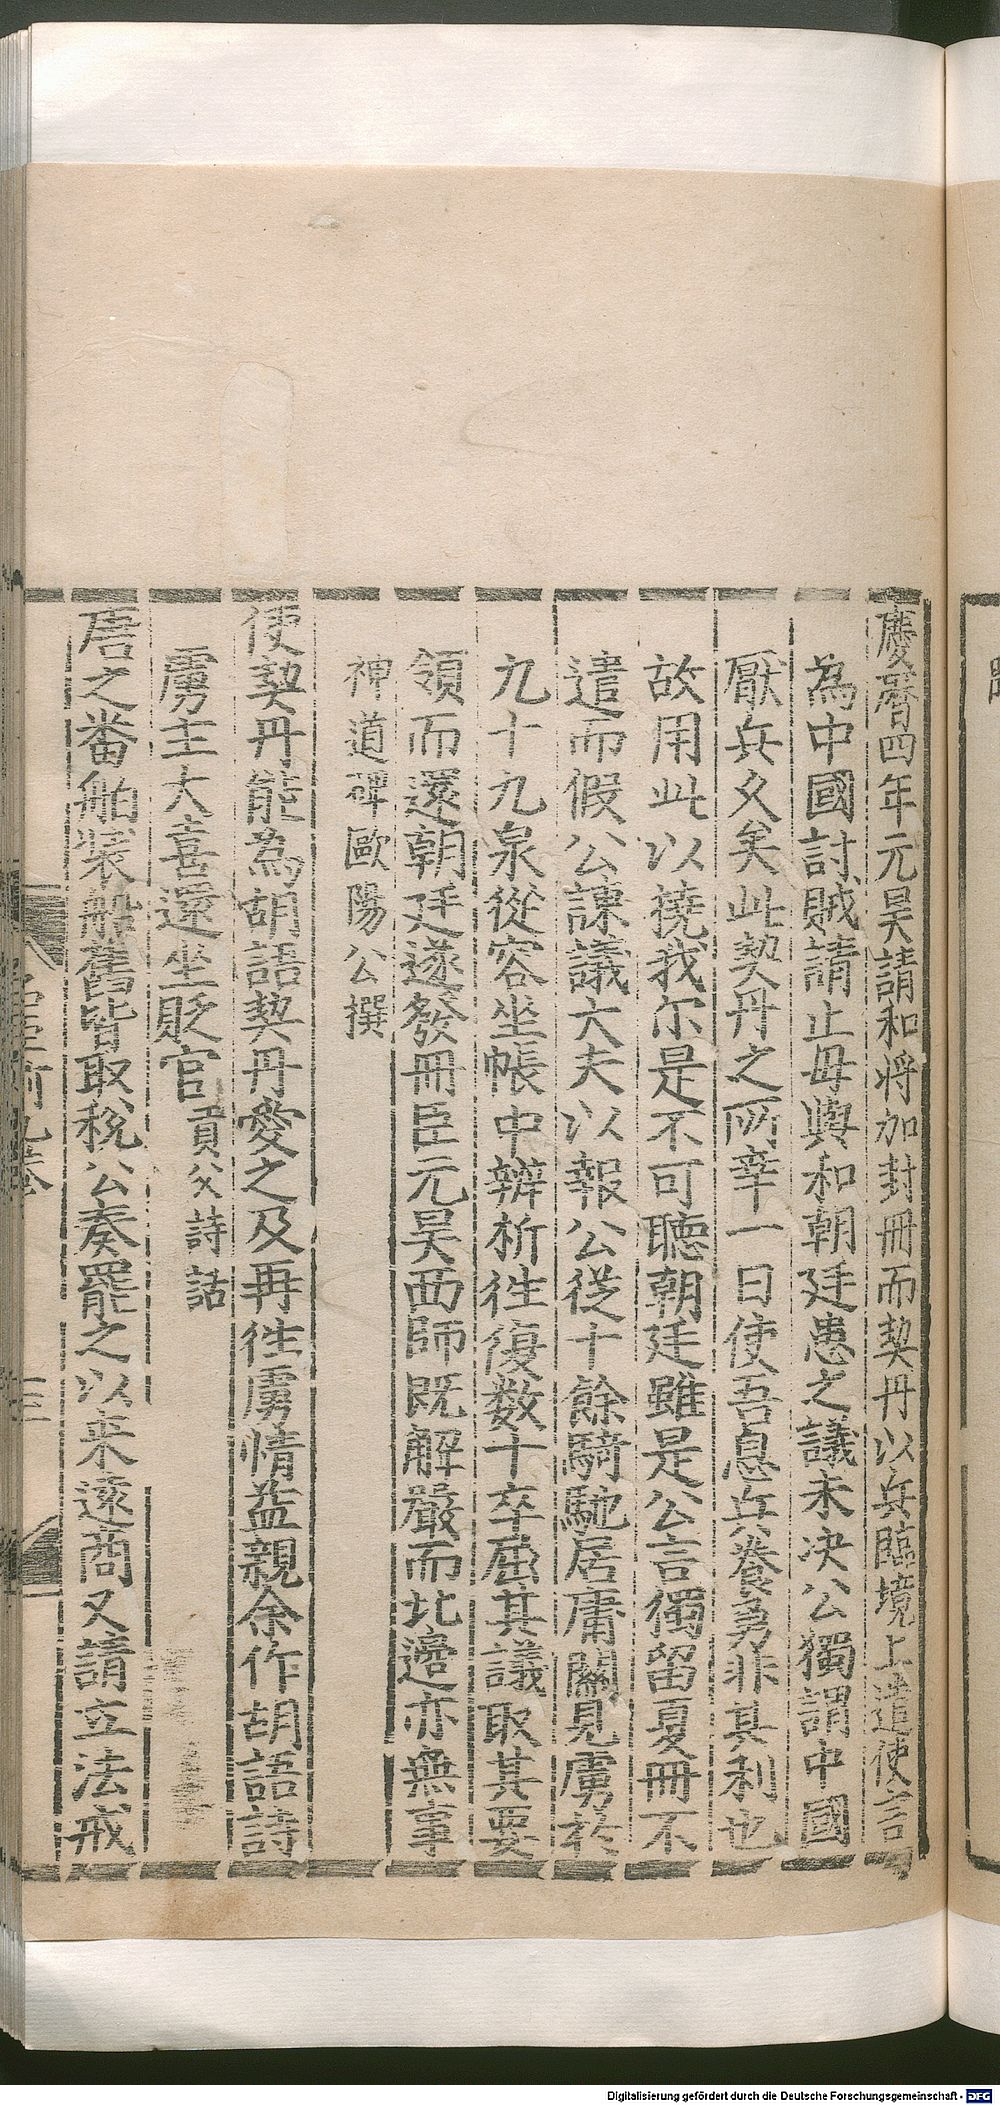 慶曆四年元昊請和將加封冊而契丹以兵臨境上遣使言
為中國討賊請止毋與和朝廷患之議未決公獨謂中國
厭兵久矣此契丹之所幸一日使吾息兵養勇非其利也
故用此以撓我尔是不可聽朝廷雖是公言獨留夏冊不
遣而假公諫議大夫以報公從十餘騎馳居庸關見虜於
九十九泉從容坐帳中辨析徃復数十卒屈其議取其要
領而還朝廷遂發冊臣元昊西師既解嚴而北邊亦無事
神道碑歐陽公撰
使契丹能為胡語契丹愛之及再徃虜情益親余作胡語詩
虜主大喜還坐貶官貢父詩話
唐之番舶裝船舊皆取稅公奏罷之以来遠商又請立法戒
Digitalisierung gefördert durch die Deutsche Forschungsgemeinschaft - DFG